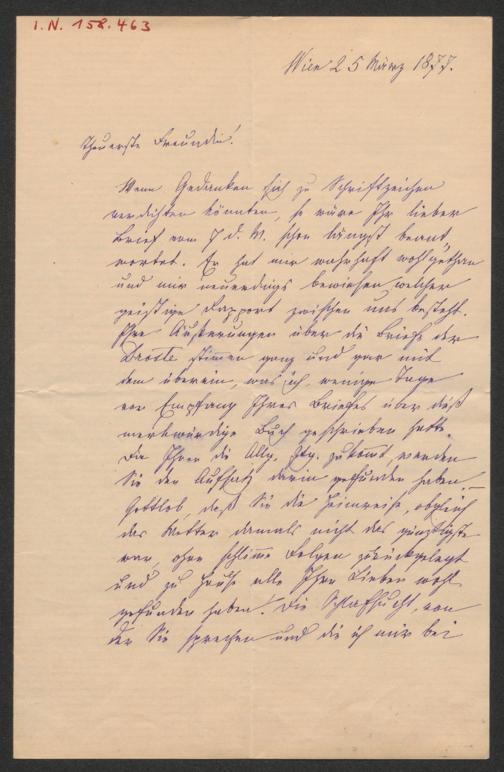 I.N. 158.463
Wien 25 März 1877.
Theuerste Freundin!
Wenn Gedanken sich zu Schriftzeichen
verdichten könnten, so wäre Ihr lieber
Brief vom 7 d. M. schon längst beant„
wortet. Er hat mir wahrhaft wohlgethan
und mir neuerdings bewiesen welcher
geistige Rapport zwischen uns besteht.
Ihre Äußerungen über die Briefe der
Droste stimen ganz und gar mit
dem überein, was ich wenige Tage
vor Empfang Ihres Briefes über dieß
merkwürdige Buch geschrieben hatte.
Da Ihnen die Allg. Ztg. zukomt, werden
Sie den Aufsatz darin gefunden haben. –
Gottlob, daß Sie die Heimreise, obgleich
das Wetter damals nicht das günstigste
war, ohne schlime Folgen zurückgelegt
und zu Hause alle Ihre Lieben wohl
gefunden haben! Die Schlafsucht, von
der Sie sprechen und die ich mir bei